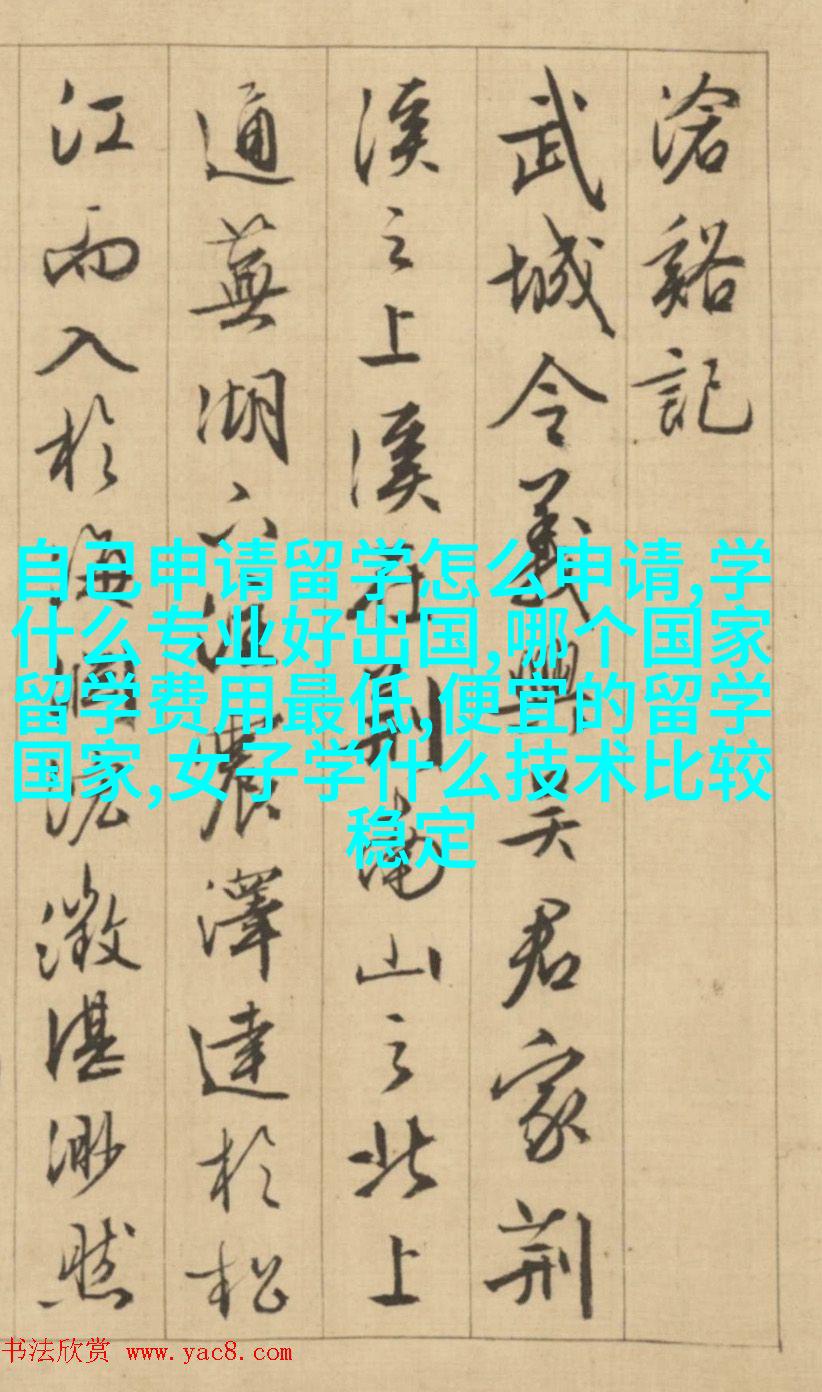 滄谿記
武城令義興吳君家荊
溪之上溪在荊南山之北上
通蕪湖下注震澤達於松
江而入於海泓澂湛渺然
自己申请留学怎么申请,学
什么专业好出国,哪个国家
留学费用最低,便宜的留学
国家,女子学什么技术比较
稳定
书法欣赏 www.yac8.com